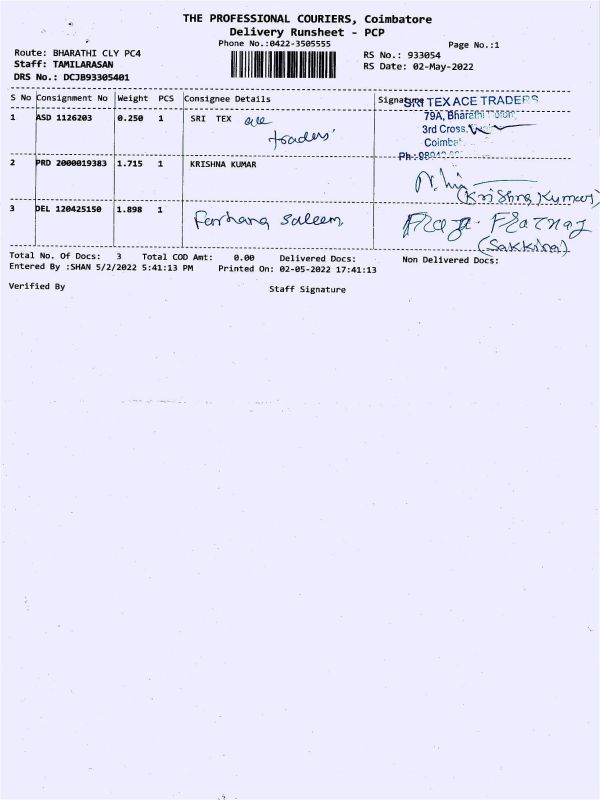 THE PROFESSIONAL COURIERS, Coimbatore
Delivery Runsheet - PCP
Phone No.:0422-3505555
Page No.:1
Route: BHARATHI CLY PC4
Staff: TAMILARASAN
DRS No.: DCJB93305401
RS No.: 933054
RS Date: 02-May-2022
S No Consignment No Weight PCS Consignee Details Signature
1 ASD 1126203 0.250 1 SRI TEX ace
traders
SRI TEX ACE TRADERS
79A, Bharathi Colony,
3rd Cross,
Coimbat
Ph : 98942
2 PRD 2000019383 1.715 1 KRISHNA KUMAR
(Krishna Kumar)
3 DEL 120425150 1.898 1 Farhana Saleem
(Sakkina)
Total No. Of Docs: 3 Total COD Amt: 0.00 Delivered Docs: Non Delivered Docs:
Entered By :SHAN 5/2/2022 5:41:13 PM Printed On: 02-05-2022 17:41:13
Verified By Staff Signature